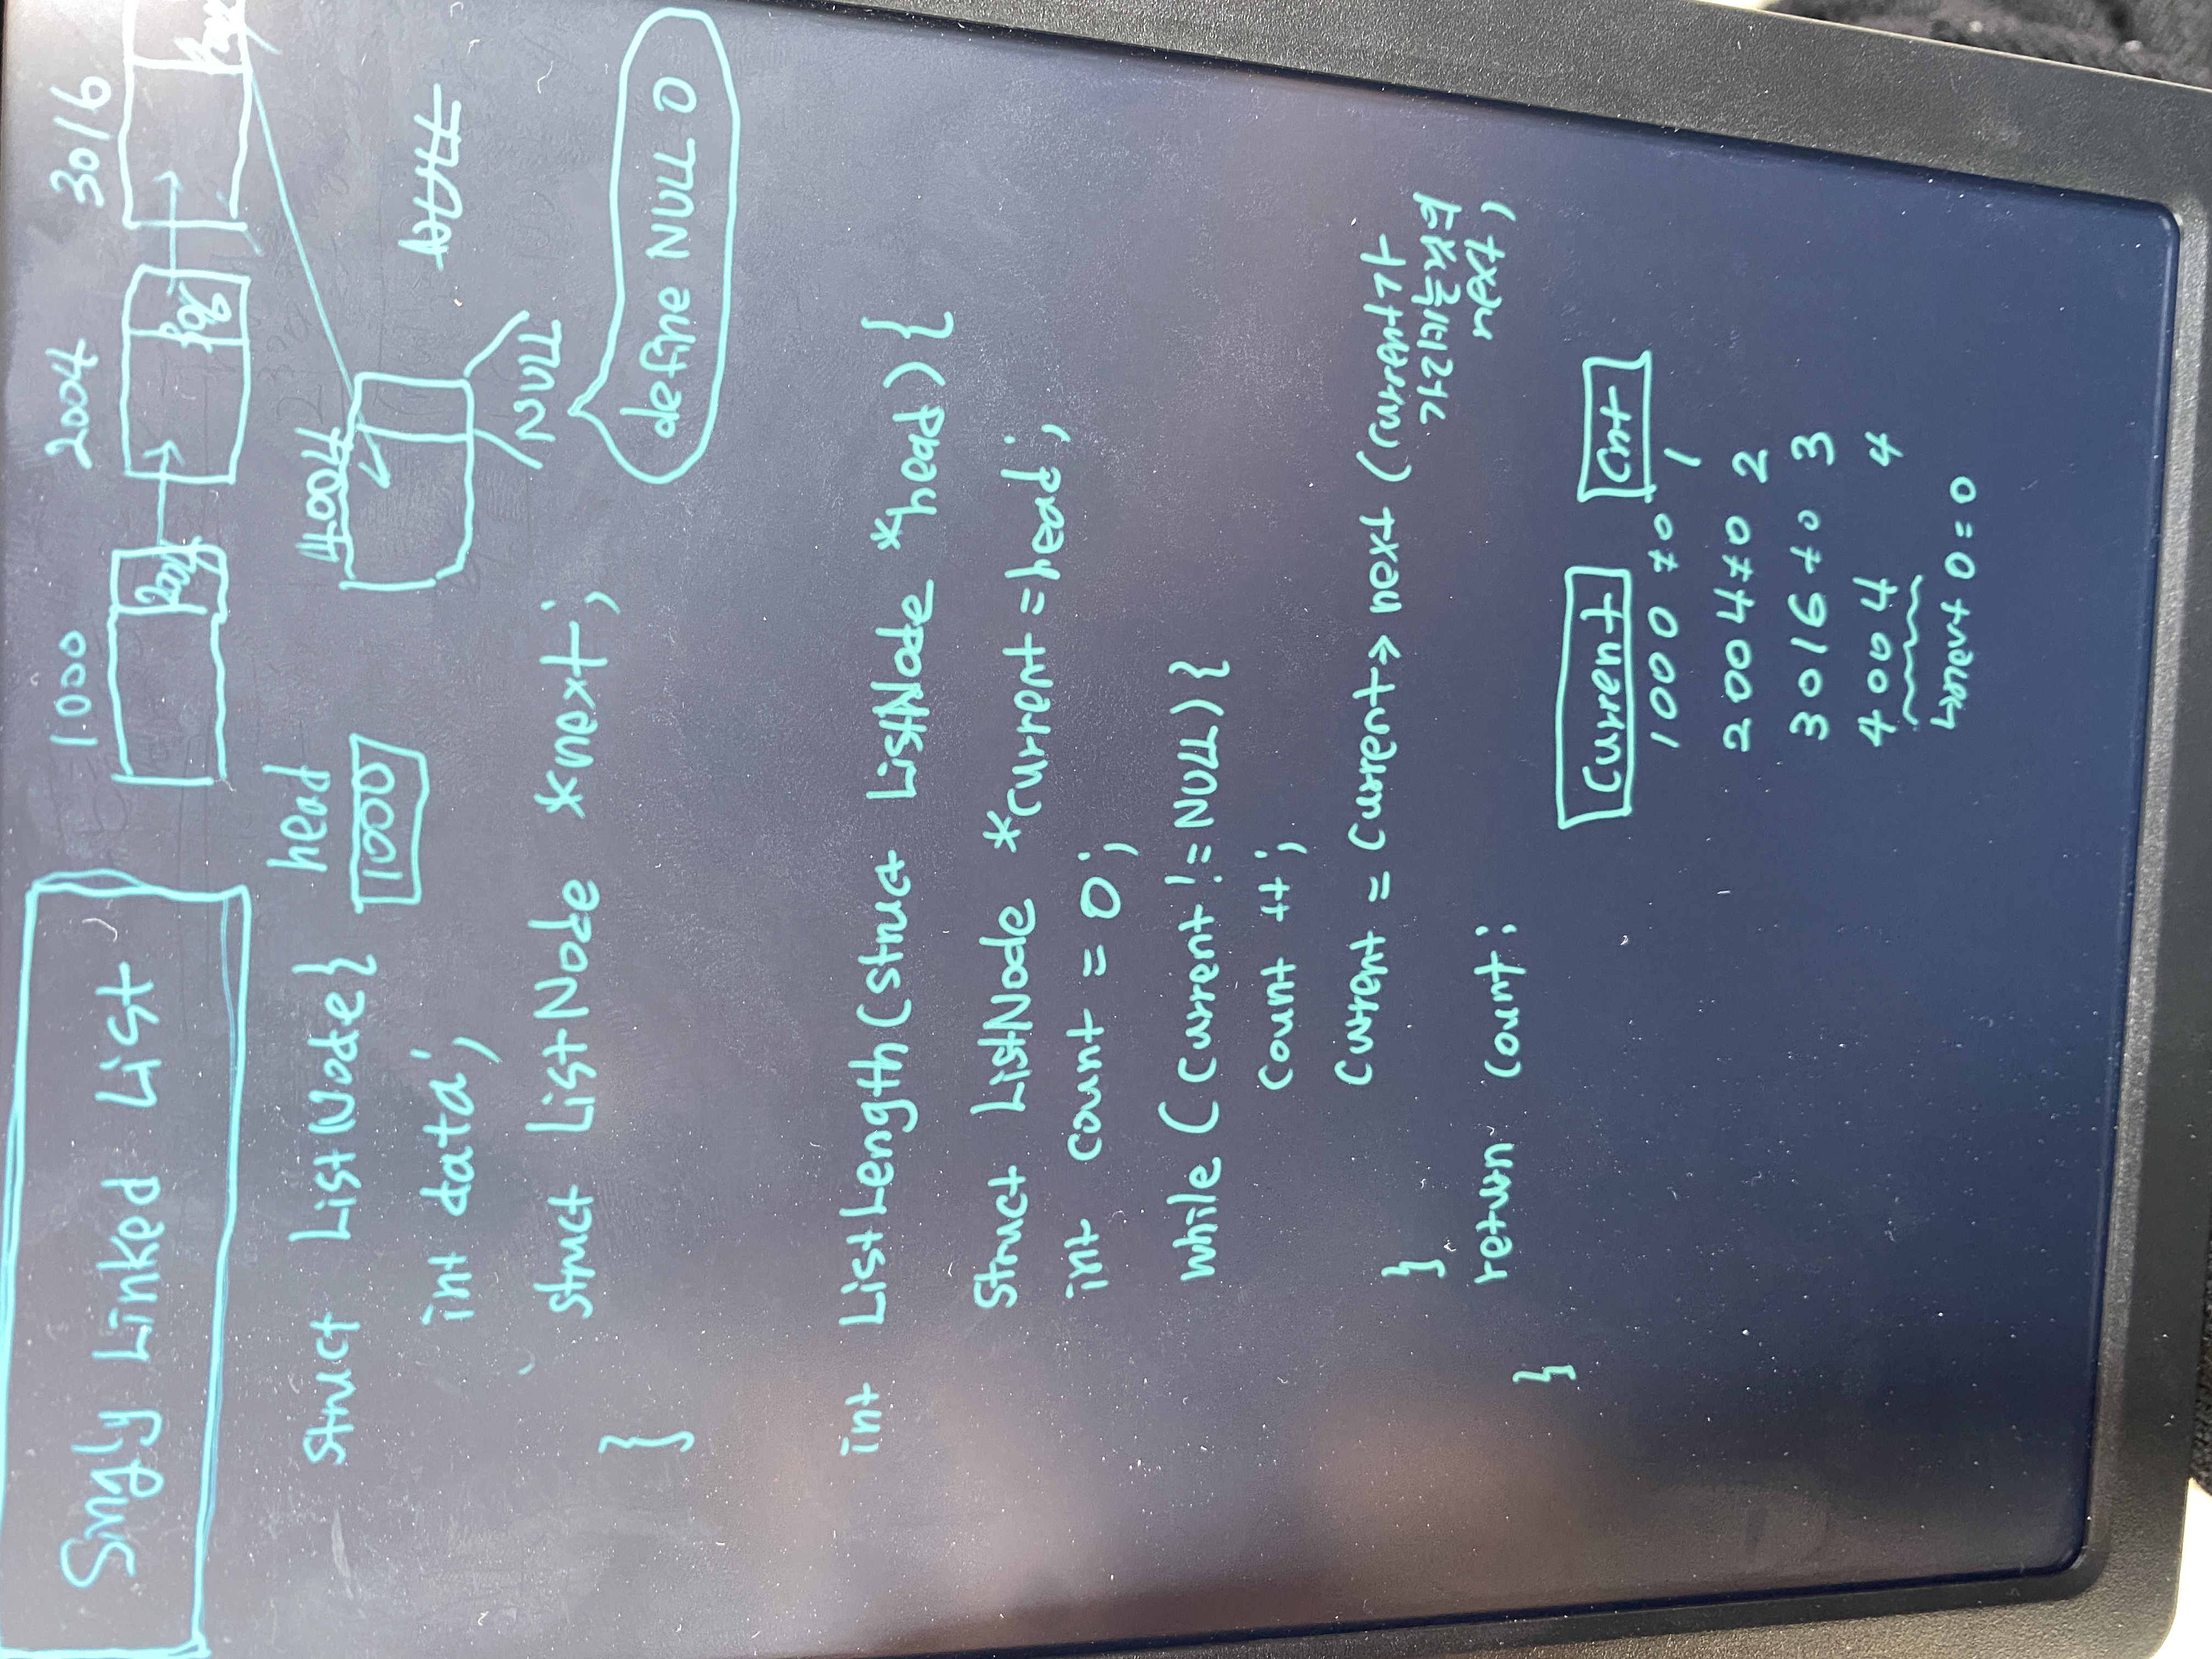 Singly Linked List
1000 2004 3016
2004
head
1000
4004
NULL
NULL
define NULL 0
struct ListNode{
int data;
struct ListNode *next;
}
int ListLength(struct ListNode *head){
struct ListNode *current = head;
int count = 0;
while (current != NULL){
count ++;
current = current → next (current가
가리키는것의
next)
}
return count;
}
current cnt
1000 ≠0 1
2004 ≠0 2
3016 ≠0 3
4004 4
↳next 0 = 0